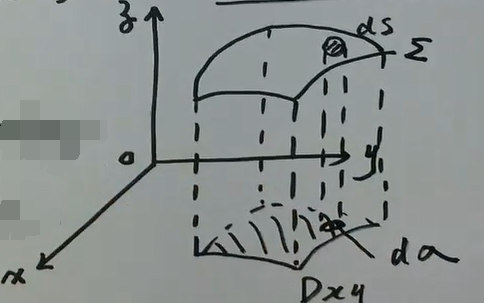 z
ds
Σ
o
y
x
da
Dxy